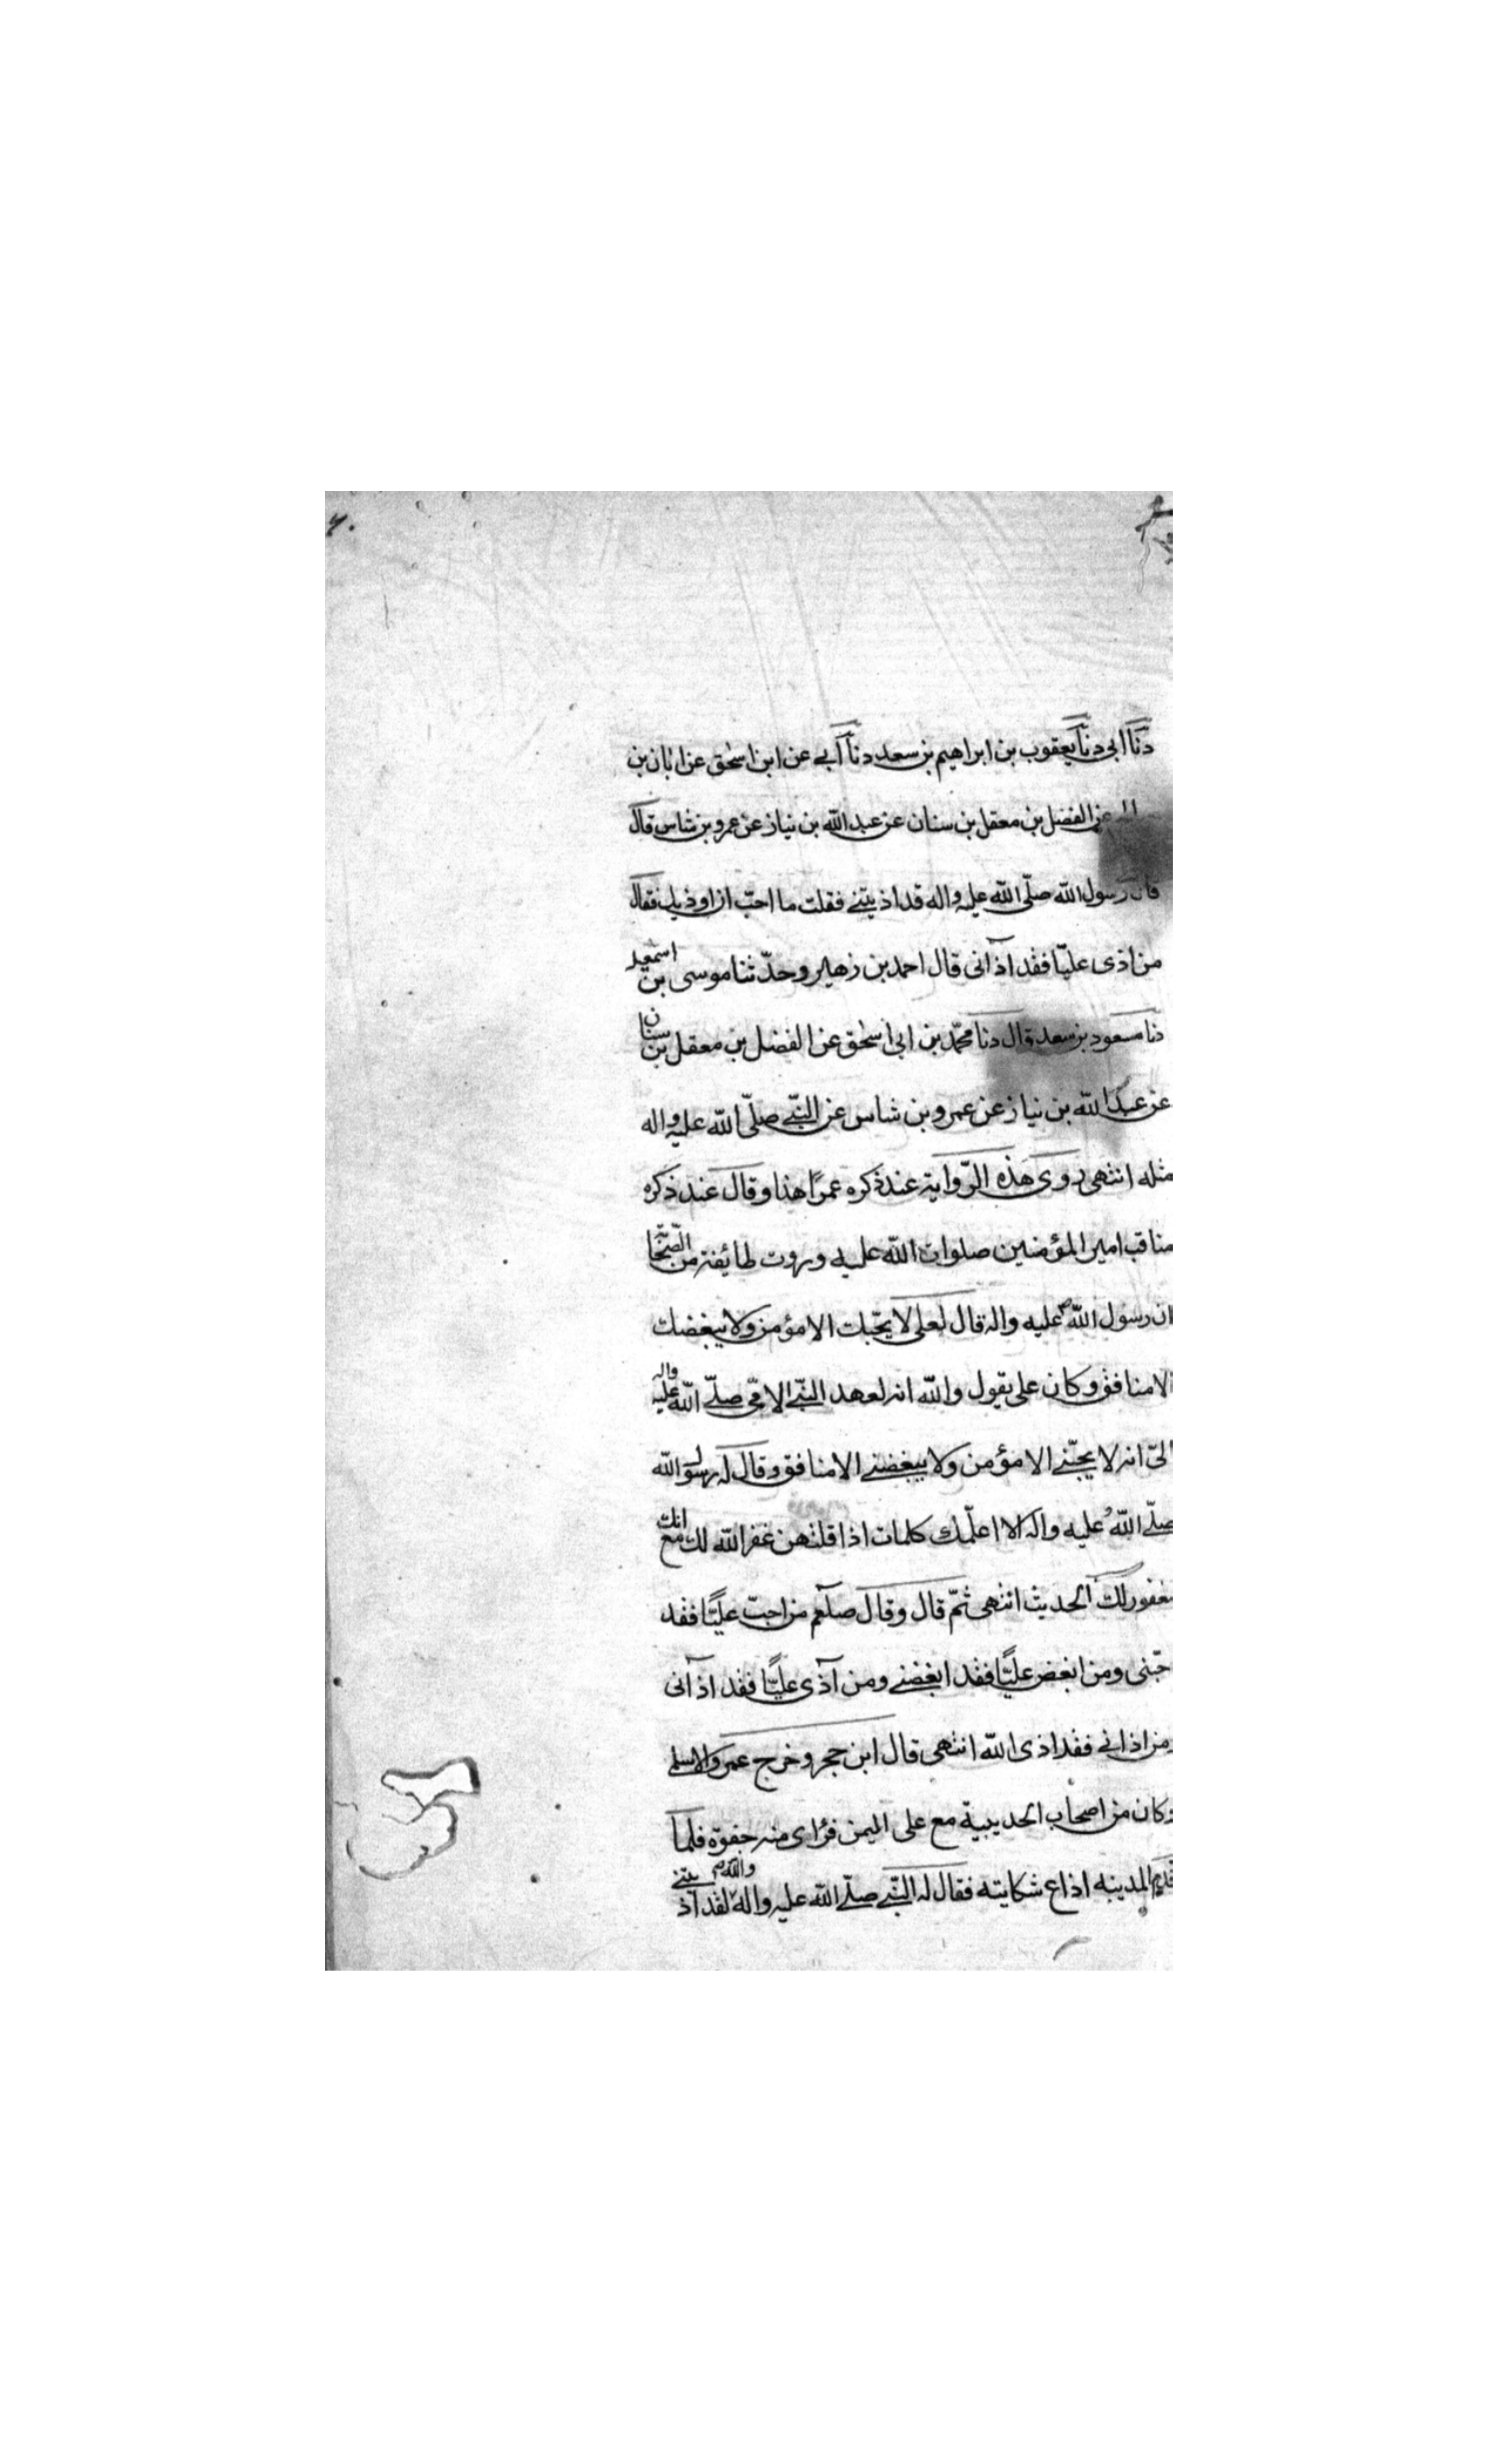 دنا ابی دنا یعقوب بن ابراهیم بن سعد دنا ابی عن ابن اسحٰق عن ابان بن
عن الفضل بن معقل بن سنان عن عبد الله بن نیاز عن عمرو بن شاس قال
قال رسول الله صلّی الله علیه واله قد اذیتنی فقلت ما احبّ ان اوذیك فقال
من اذی علیّا فقد آذانی قال احمد بن زهیر وحدّثنا موسی بن اسمعیل
دنا مسعود بن سعد قال دنا محمّد بن ابی اسحٰق عن الفضل بن معقل بن سنان
عن عبد الله بن نیاز عن عمرو بن شاس عن النبّی صلّی الله علیه واله
مثله انتهی روی هذه الرّوایة عند ذکره عمرًا هذا وقال عند ذکره
مناقب امیر المؤمنین صلوات الله علیه وروت طائفة من الصّحابة
ان رسول الله ص علیه واله قال لعلی لا یحبّك الا مؤمن ولا یبغضك
الا منافق وکان علی یقول والله انه لعهد النبّی الامّی صلّی الله علیه واله
الیّ انه لا یحبّنی الا مؤمن ولا یبغضنی الا منافق وقال له رسول الله
صلّی الله علیه واله الا اعلّمك کلمات اذا قلتهن غفر الله لك مع انك
مغفور لك الحدیث انتهی ثمّ قال وقال صلعم من احبّ علیًّا فقد
احبّنی ومن ابغض علیًّا فقد ابغضنی ومن آذی علیًّا فقد اذآنی
ومن اذانی فقد اذی الله انتهی قال ابن حجر وخرج عمرو الاسلمی
وکان من اصحاب الحدیبیة مع علی الیمن فرای منه جفوة فلمّا
قدم المدینه اذاع شکایته فقال له النبّی صلّی الله علیه واله والله لقد آذیتنی